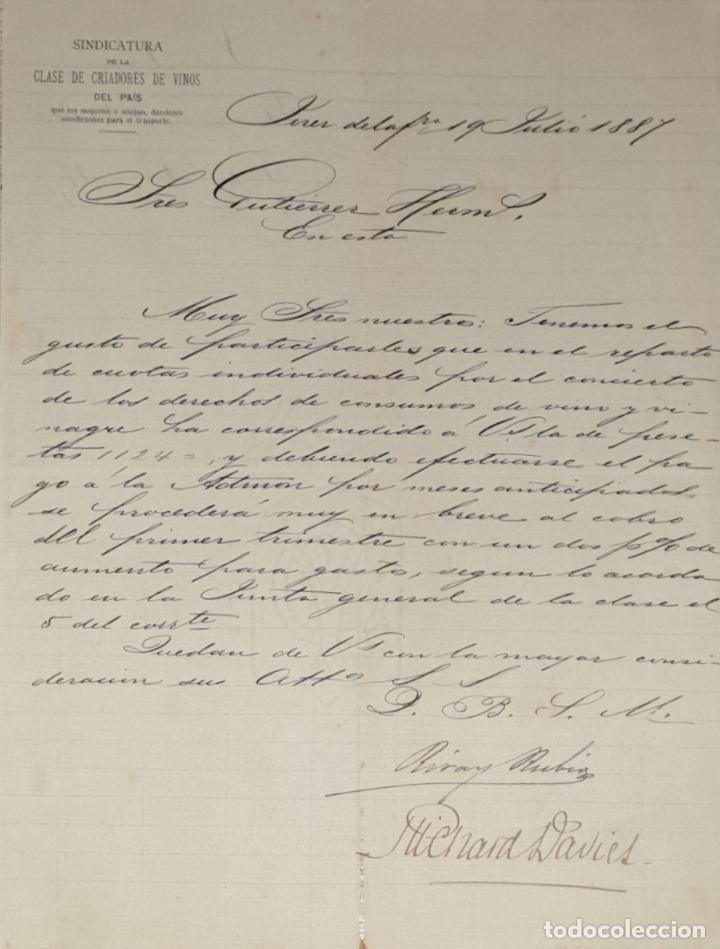 SINDICATURA
DE LA
CLASE DE CRIADORES DE VINOS
DEL PAÍS
que los mejoran ó añejan, dándoles
condiciones para el trasporte.
Jerez de la fra 19 Julio 1887
Sres Gutierrez Herms.
En esta
Muy Sres nuestros: Tenemos el
gusto de participarles que en el reparto
de cuotas individuales por el concierto
de los derechos de consumos, de vino y vi-
nagre ha correspondido á Vs la de pese-
tas 1124=, y debiendo efectuarse el pa
go á la Admon por meses anticipados,
se procederá muy en breve al cobro
del primer trimestre con un dos p% de
aumento para gastos, segun lo acorda
do en la Junta general de la clase el
5 del corrte
Quedan de Vs con la mayor consi-
deracion sus Attos S S
Q. B. S. M.
Riva y Rubio
Richard Davies.
todocoleccion